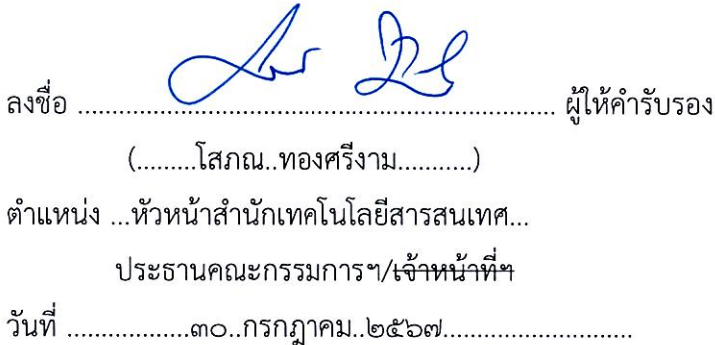 ลงชื่อ ........................................................................ ผู้ให้คำรับรอง
(.........โสภณ..ทองศรีงาม...........)
ตำแหน่ง ...หัวหน้าสำนักเทคโนโลยีสารสนเทศ...
ประธานคณะกรรมการฯ/เจ้าหน้าที่ฯ
วันที่ ....................๓๐..กรกฎาคม..๒๕๖๗.........................